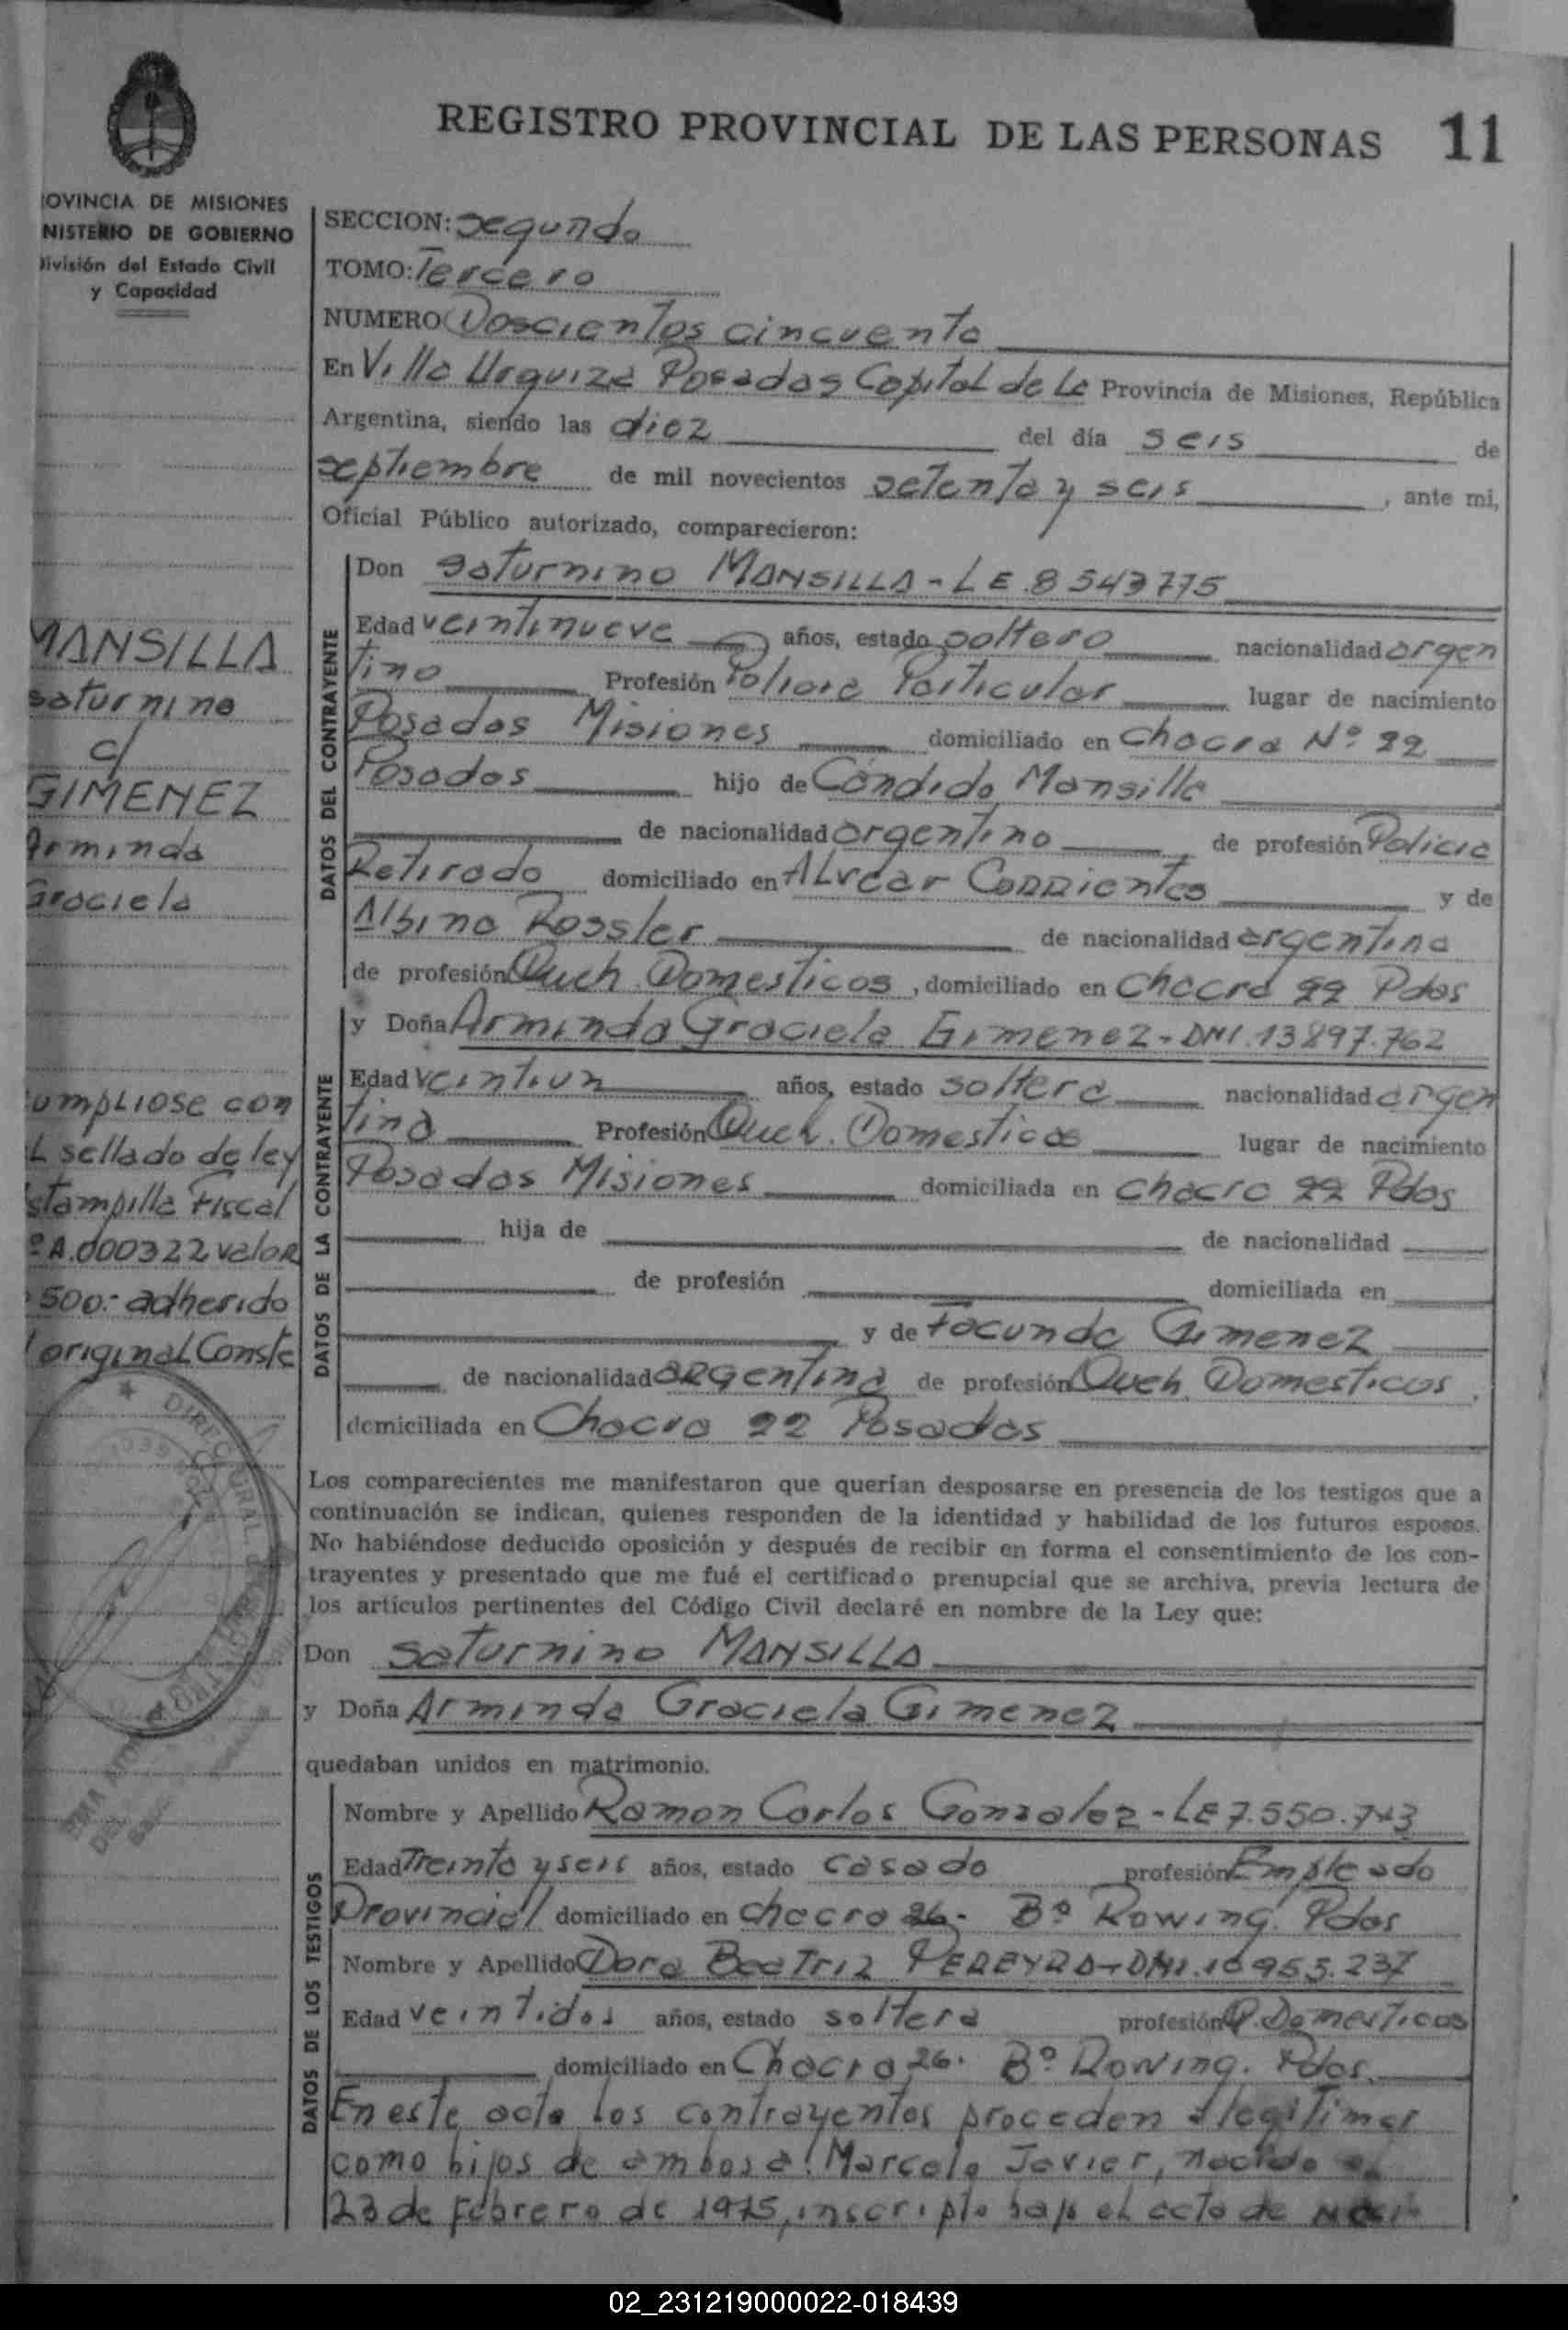 REGISTRO PROVINCIAL DE LAS PERSONAS 11
OVINCIA DE MISIONES
NISTERIO DE GOBIERNO
División del Estado Civil
y Capacidad
MANSILLA
Saturnino
c/
GIMENEZ
Arminda
Graciela
umpliose con
L sellado de ley
Estampilla Fiscal
º A.000322 valor
500.- adherido
original Conste
SECCION: Segunda
TOMO: Tercero
NUMERO Doscientos cincuenta
En Villa Urquiza Posadas Capital de la Provincia de Misiones, República
Argentina, siendo las diez del día seis de
septiembre de mil novecientos setenta y seis, ante mi,
Oficial Público autorizado, comparecieron:
DATOS DEL CONTRAYENTE
Don Saturnino MANSILLA - LE 8543775
Edad veintinueve años, estado soltero nacionalidad argen
tino Profesión Particular lugar de nacimiento
Posadas Misiones domiciliado en Chacra Nº 22
Posadas hijo de Cándido Mansilla
de nacionalidad argentino de profesión Policia
Retirado domiciliado en Alvear Corrientes y de
Albina Rossler de nacionalidad argentina
de profesión Queh. Domesticos, domiciliado en Chacra 22 Pdas
DATOS DE LA CONTRAYENTE
y Doña Arminda Graciela Gimenez - DNI. 13897.762
Edad veintiun años, estado soltera nacionalidad argen
tina Profesión Queh. Domesticos lugar de nacimiento
Posadas Misiones domiciliada en Chacra 22 Pdas
hija de de nacionalidad
de profesión domiciliada en
y de Facunda Gimenez
de nacionalidad argentina de profesión Queh. Domesticos,
domiciliada en Chacra 22 Posadas
Los comparecientes me manifestaron que querían desposarse en presencia de los testigos que a
continuación se indican, quienes responden de la identidad y habilidad de los futuros esposos.
No habiéndose deducido oposición y después de recibir en forma el consentimiento de los con-
trayentes y presentado que me fué el certificado prenupcial que se archiva, previa lectura de
los artículos pertinentes del Código Civil declaré en nombre de la Ley que:
Don Saturnino MANSILLA
y Doña Arminda Graciela Gimenez
quedaban unidos en matrimonio.
DATOS DE LOS TESTIGOS
Nombre y Apellido Ramon Carlos Gonzalez - LE 7.550.743
Edad Treinta y seis años, estado casado profesión Empleado
Provincial domiciliado en chacra 26- Bº Rowing. Pdas
Nombre y Apellido Dora Beatriz PEREYRA - DNI.
Edad veintidos años, estado soltera profesión Q. Domesticos
domiciliado en Chacra 26. Bº Rowing. Pdas.
En este acto los contrayentes proceden a legitimar
como hijos de ambos a: Marcelo Javier, nacido el
23 de Febrero de 1975, inscripto bajo el acta de
02_231219000022-018439